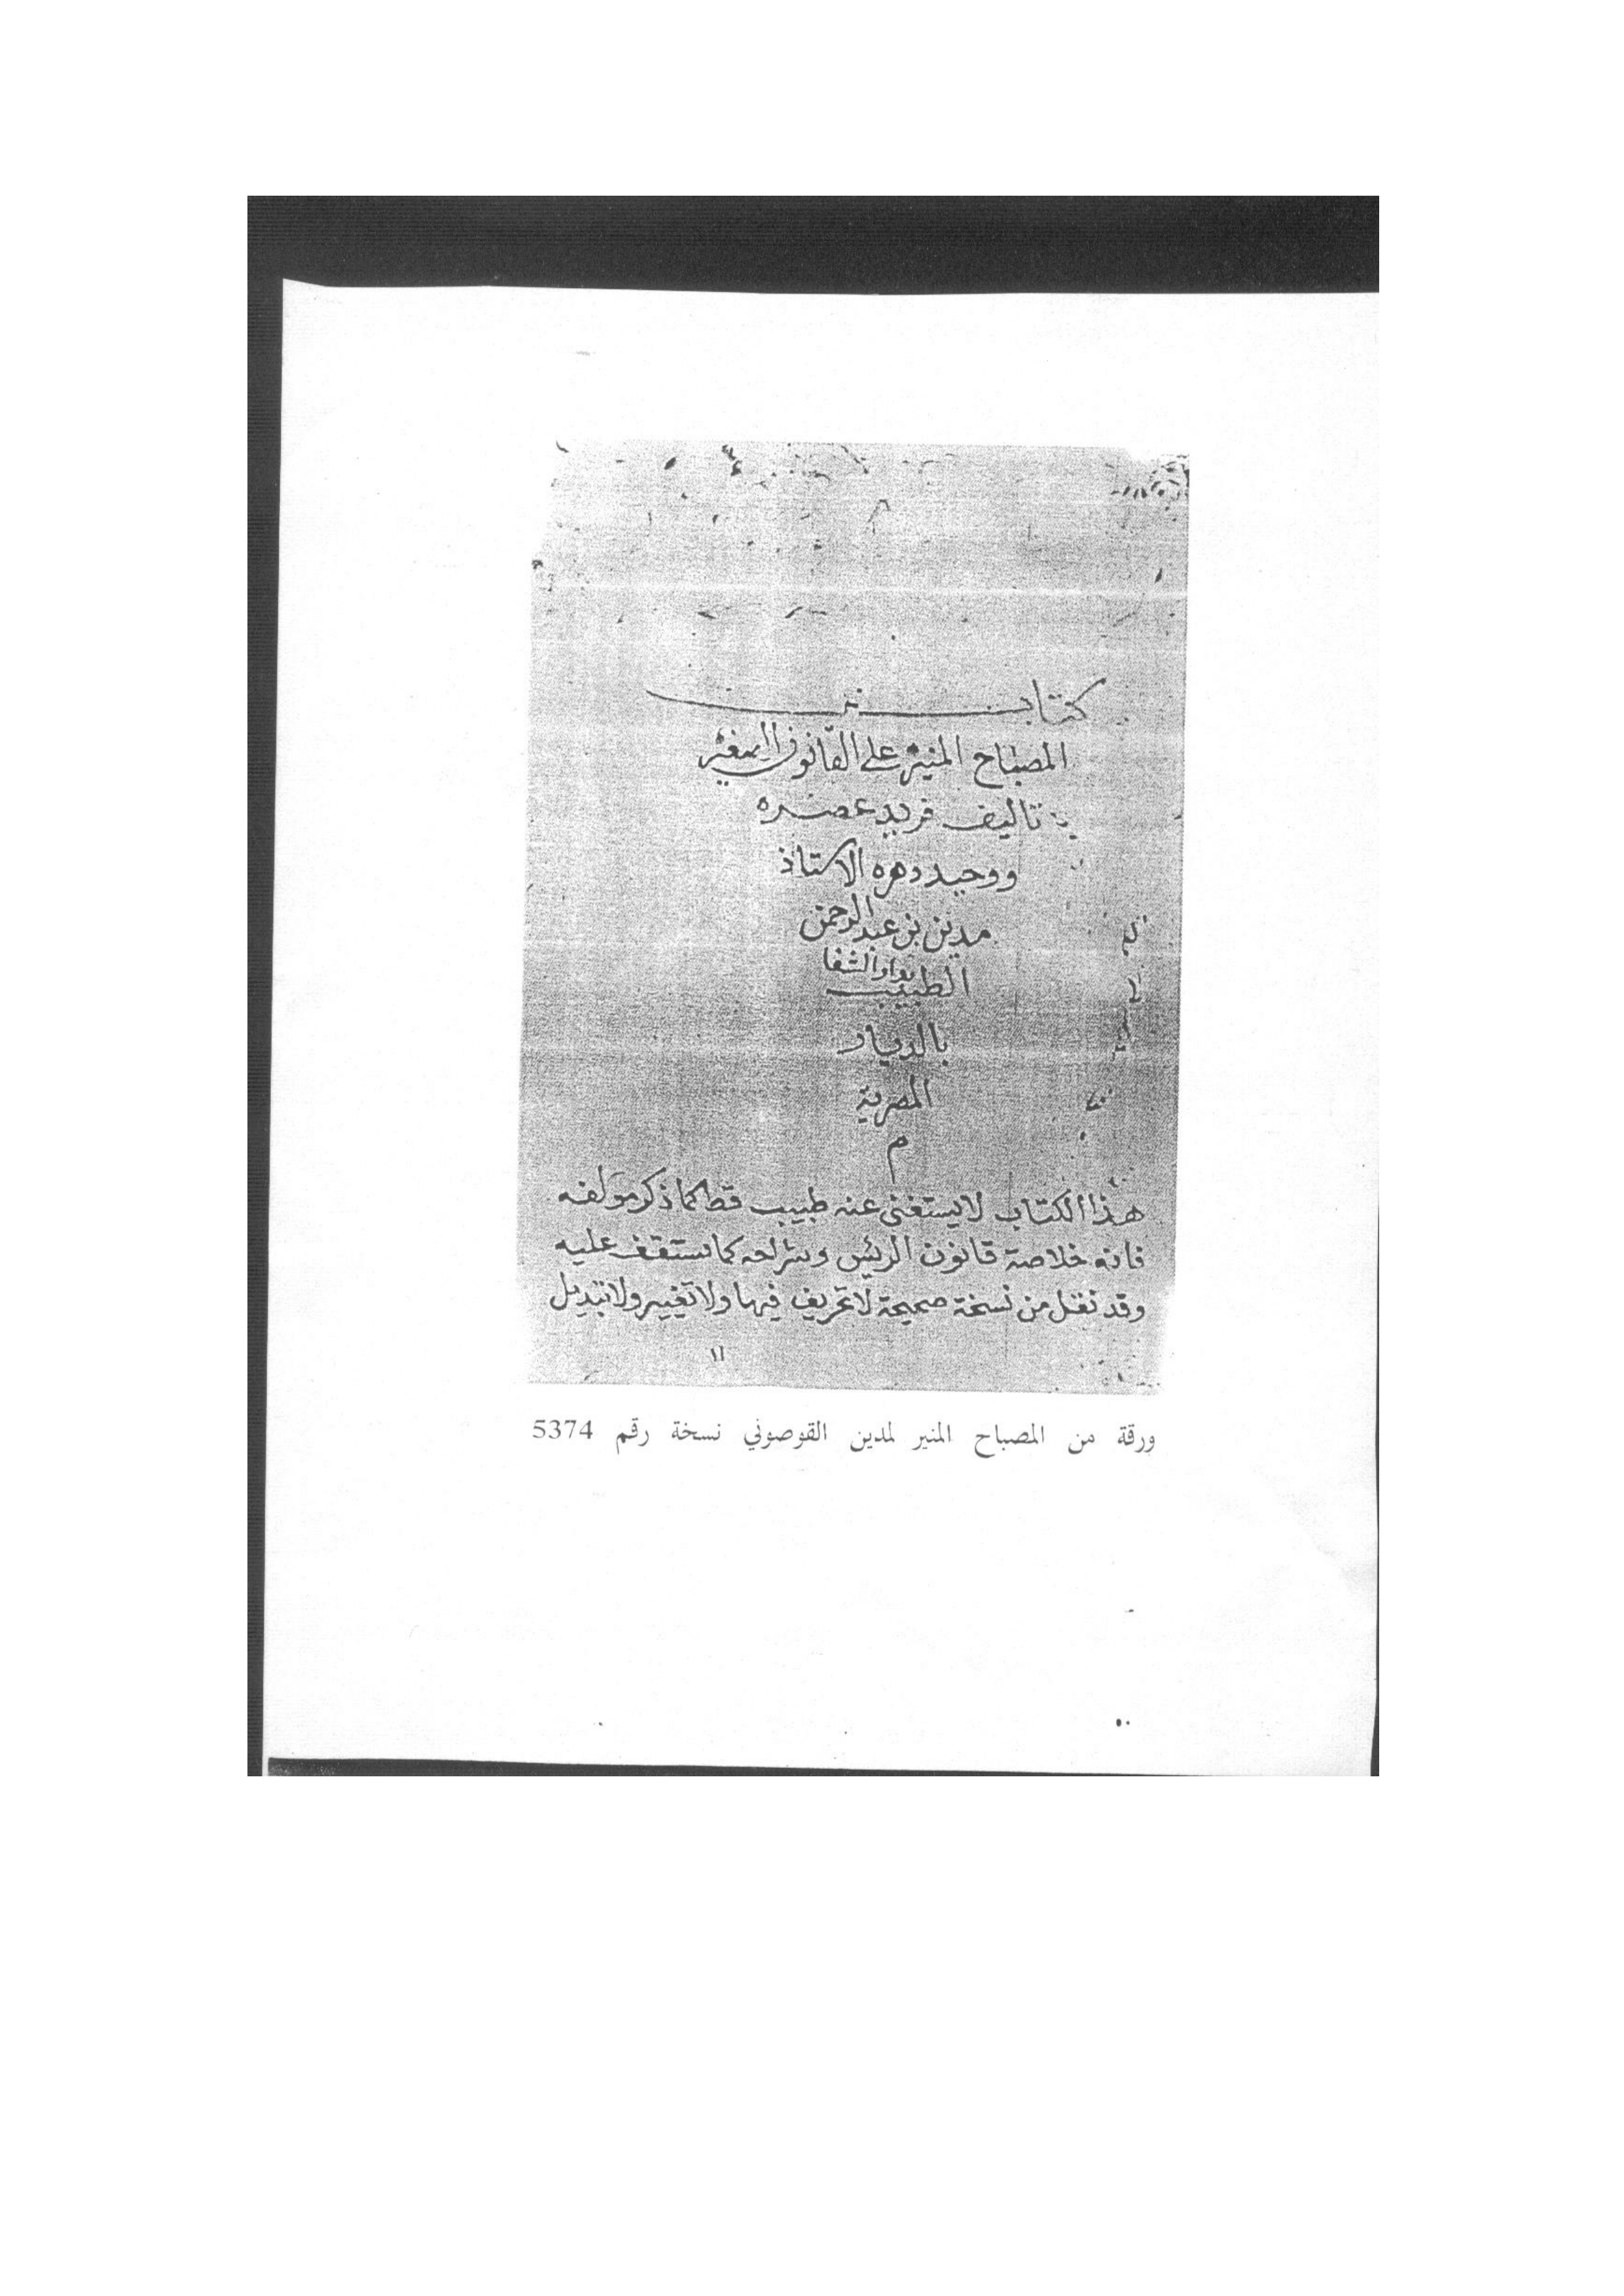 كتاب
المصباح المنير على القانون الصغير
تاليف فريد عصره
ووحيد دهره الاستاذ
مدين بن عبد الرحمن
الطبيب بدار الشفا
بالديار
المصرية
م
هذا الكتاب لا يستغنى عنه طبيب قط كما ذكر مولفه
فانه خلاصة قانون الريس وشراحه كما ستقف عليه
وقد نقل من نسخة صحيحة لا تحريف فيها ولا تغيير ولا تبديل
١١
ورقة من المصباح المنير لمدين القوصوني نسخة رقم 5374